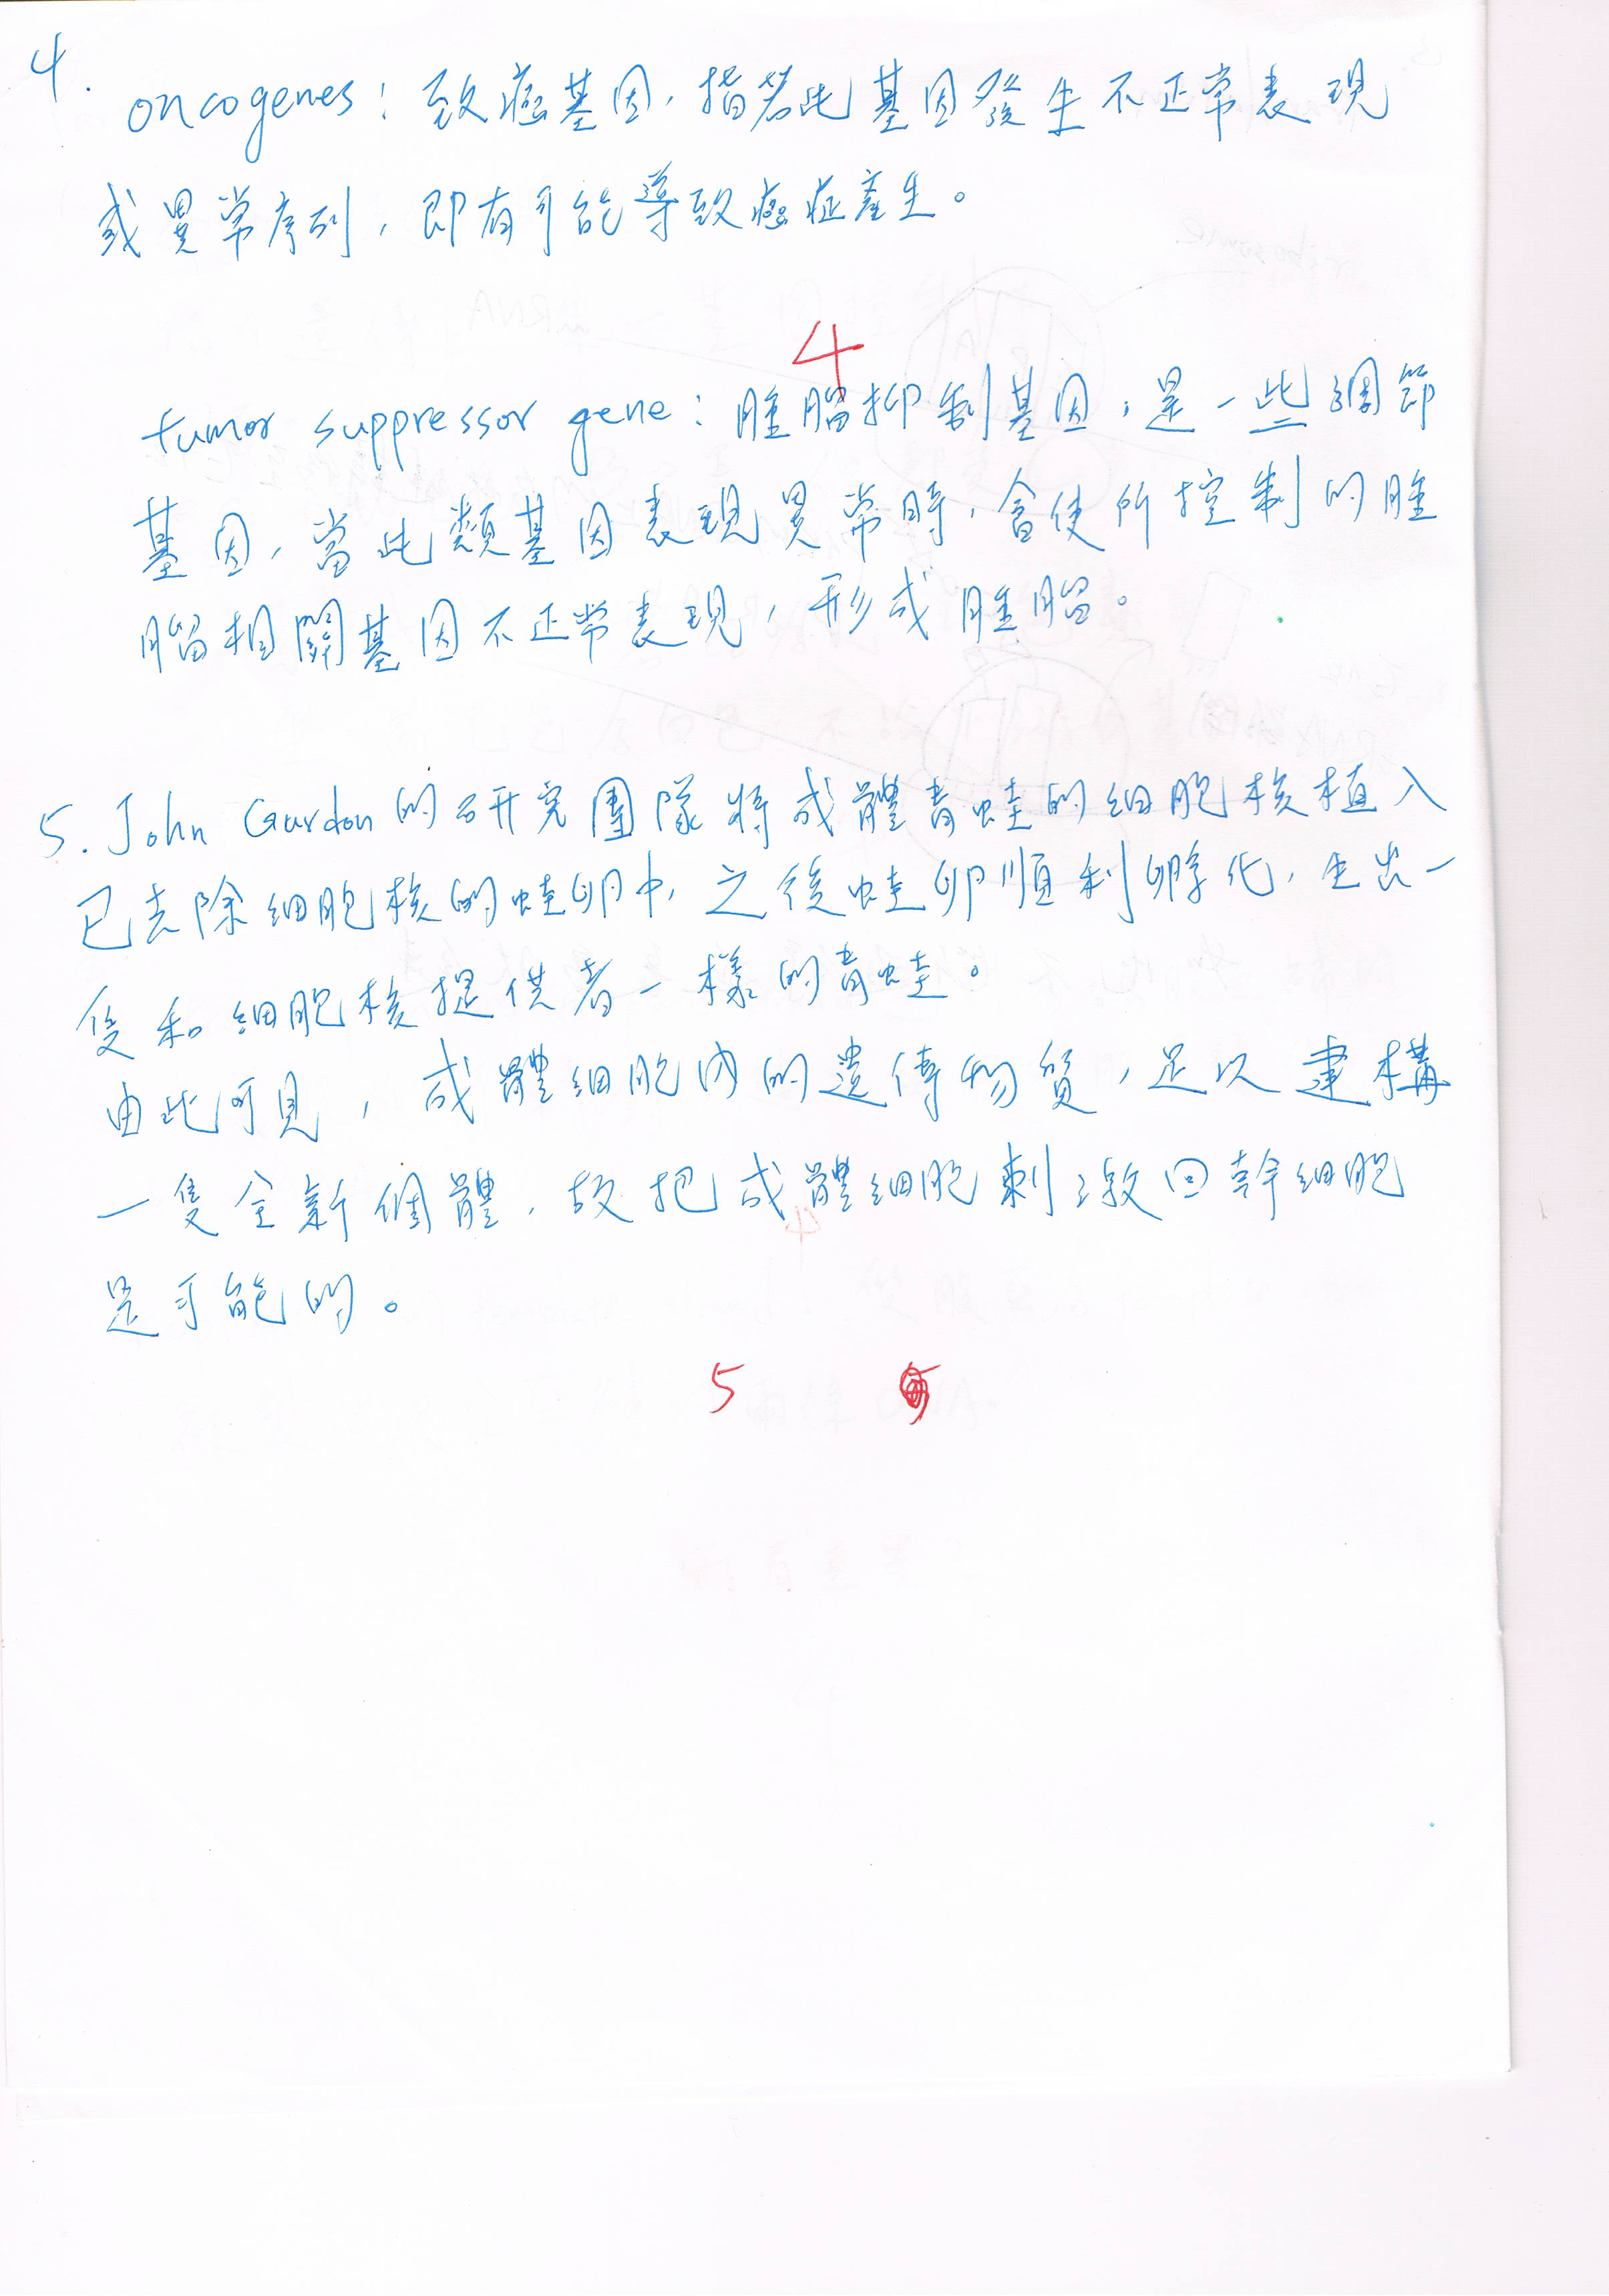 4.
oncogenes：致癌基因，指若此基因發生不正常表現
或異常序列，即有可能導致癌症產生。
4
tumor suppressor gene：腫瘤抑制基因，是一些調節
基因，當此類基因表現異常時，會使所控制的腫
瘤相關基因不正常表現，形成腫瘤。
5. John Gurdon的研究團隊將成體青蛙的細胞核植入
已去除細胞核的蛙卵中，之後蛙卵順利孵化，生出一
隻和細胞核提供者一樣的青蛙。
由此可見，成體細胞內的遺傳物質，足以建構
一隻全新個體，故把成體細胞刺激回幹細胞
是可能的。
5